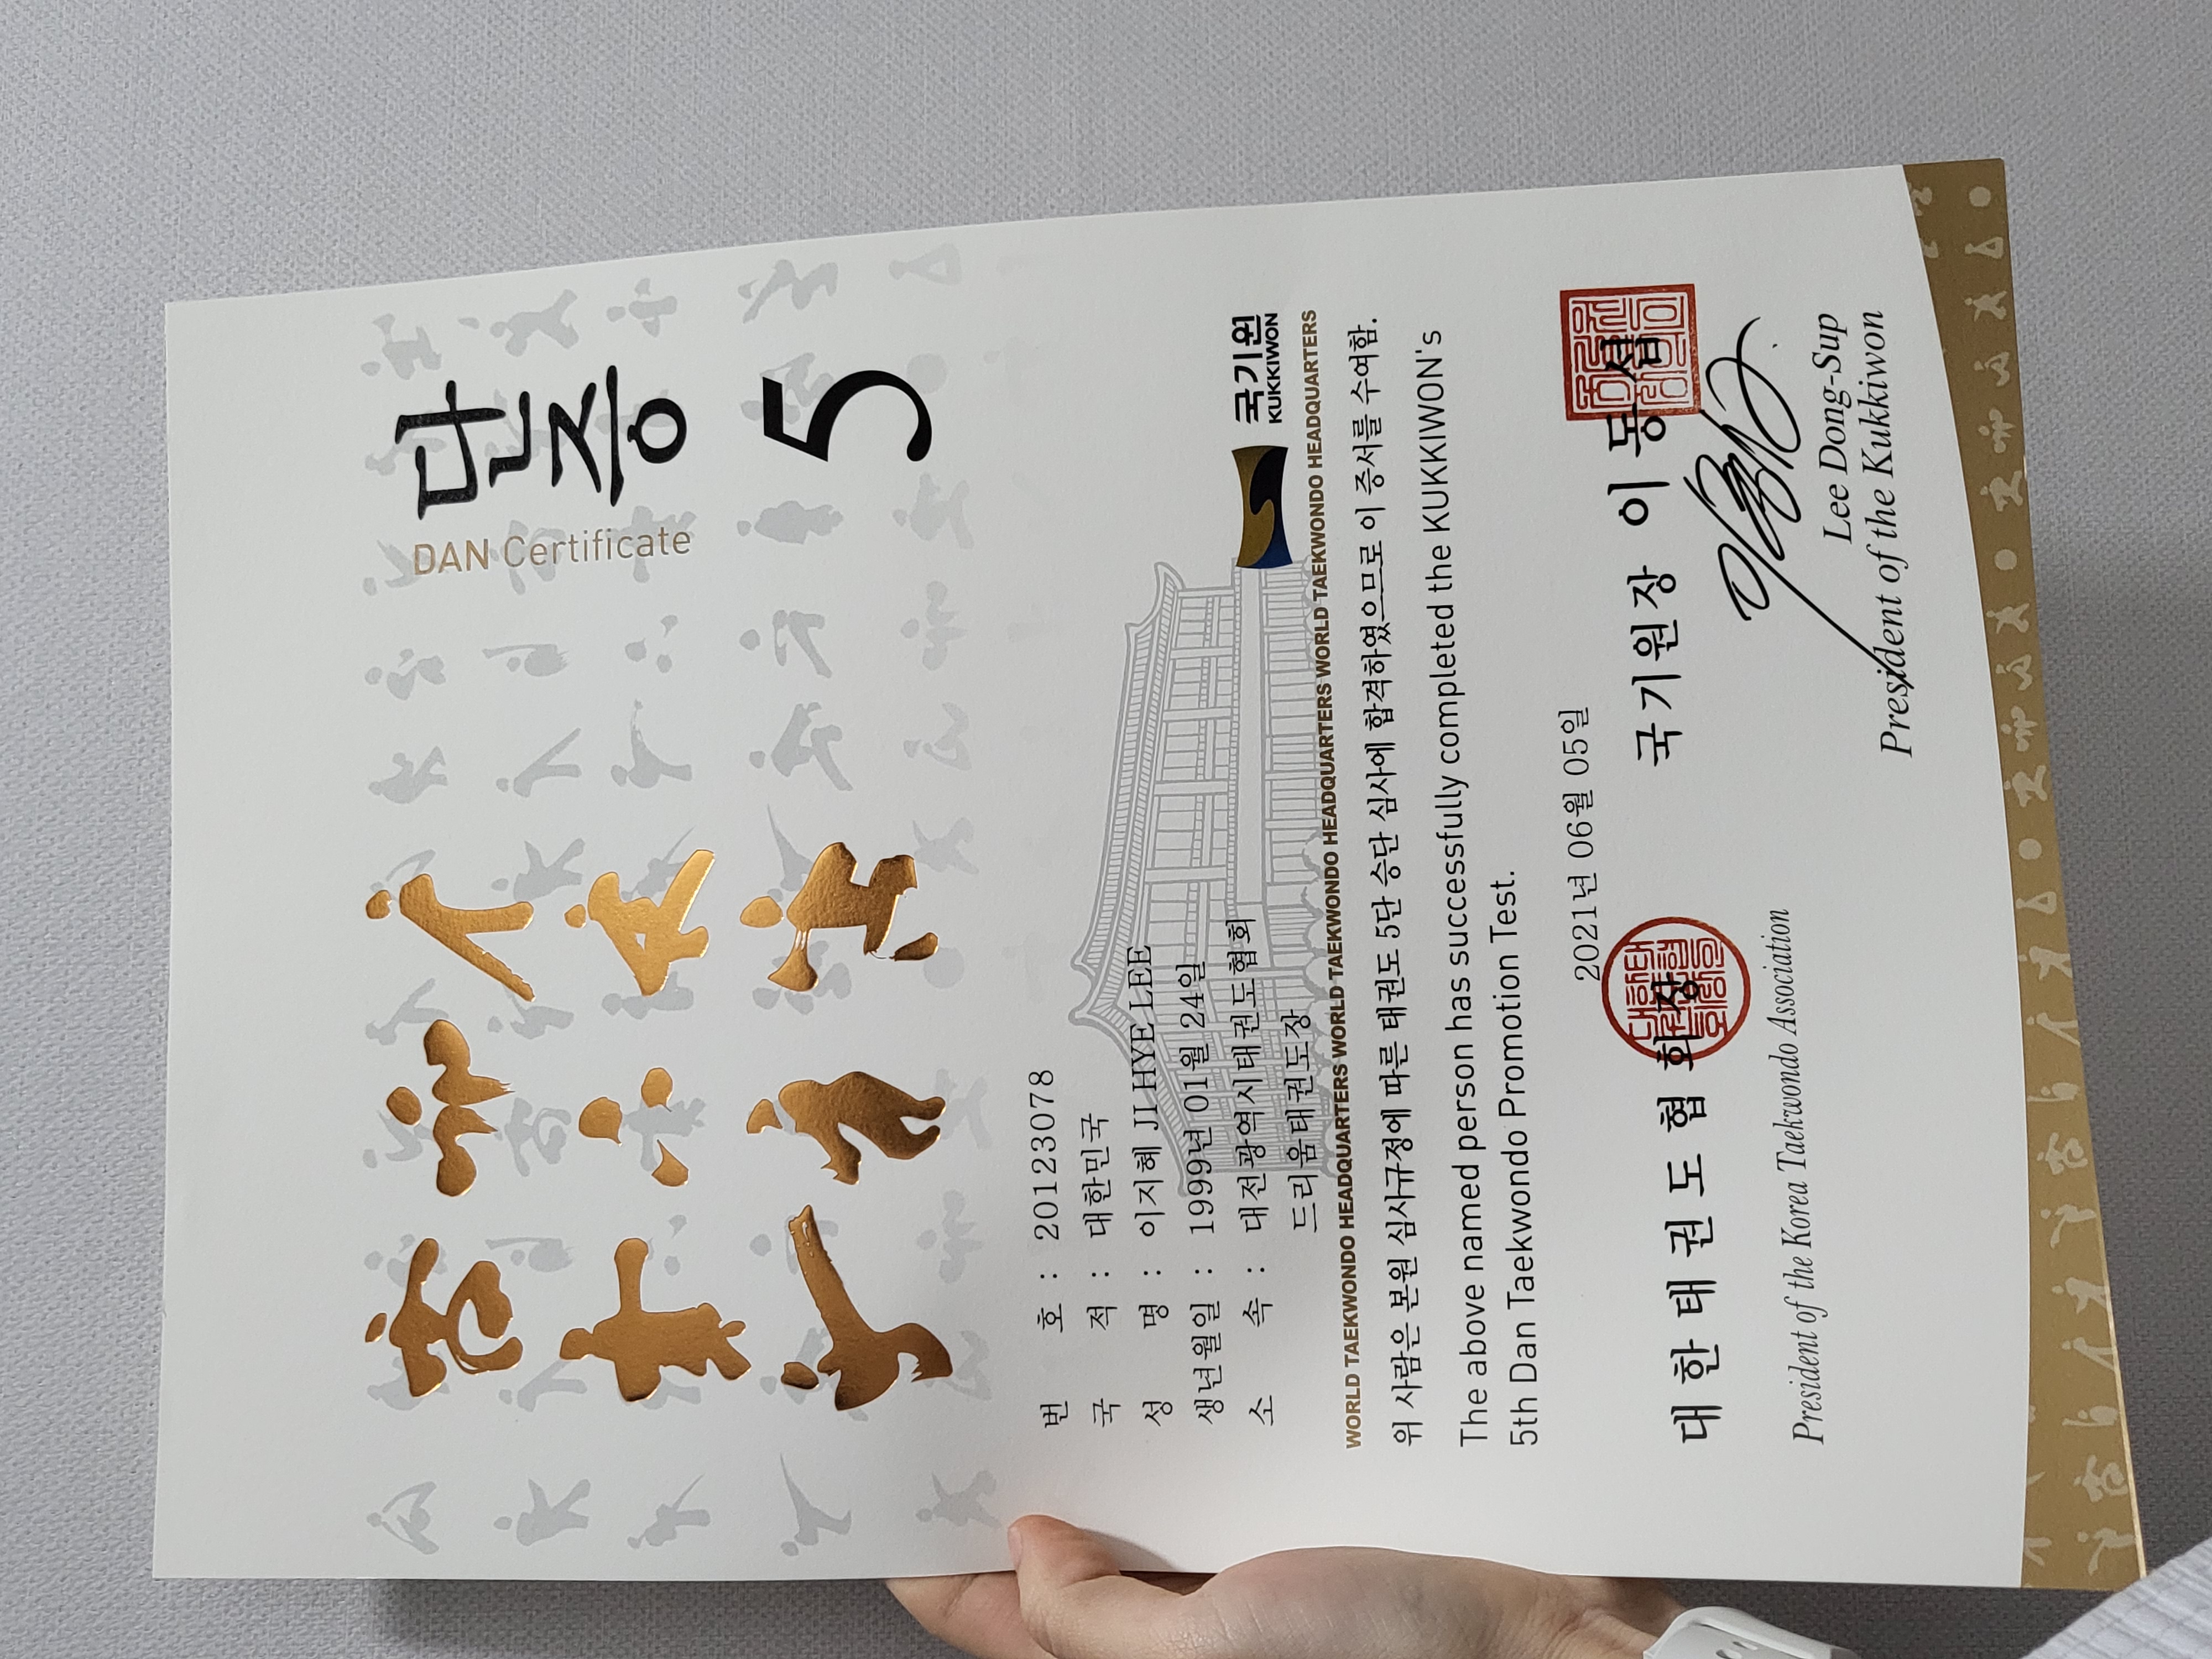 단증
DAN Certificate
5
번 호 : 20123078
국 적 : 대한민국
성 명 : 이지혜 JI HYE LEE
생년월일 : 1999년 01월 24일
소 속 : 대전광역시태권도협회
드리움태권도장
국기원
KUKKIWON
WORLD TAEKWONDO HEADQUARTERS WORLD TAEKWONDO HEADQUARTERS WORLD TAEKWONDO HEADQUARTERS WORLD TAEKWONDO HEADQUARTERS WORLD TAEKWONDO HEADQUARTERS
위 사람은 본원 심사규정에 따른 태권도 5단 승단 심사에 합격하였으므로 이 증서를 수여함.
The above named person has successfully completed the KUKKIWON's
5th Dan Taekwondo Promotion Test.
2021년 06월 05일
대한태권도협회장
President of the Korea Taekwondo Association
국기원장 이동섭
Lee Dong-Sup
President of the Kukkiwon